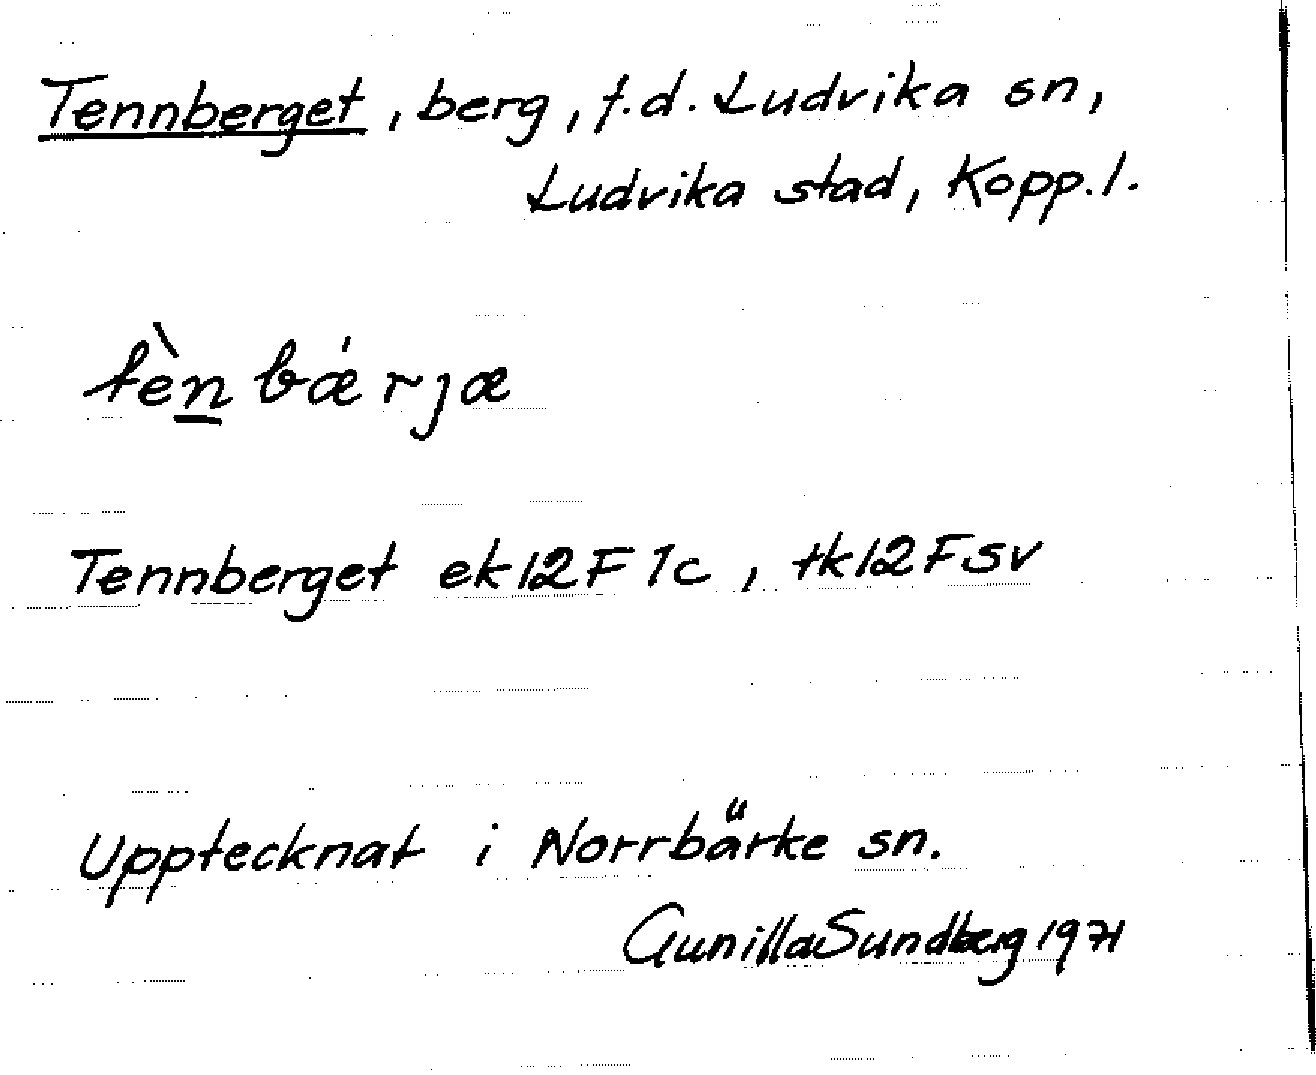 Tennberget, berg, f.d. Ludvika sn,
Ludvika stad, Kopp.l.
tèn bǽrjæ
Tennberget ek12F1c, tk12Fsv
Upptecknat i Norrbärke sn.
Gunilla Sundberg 1971